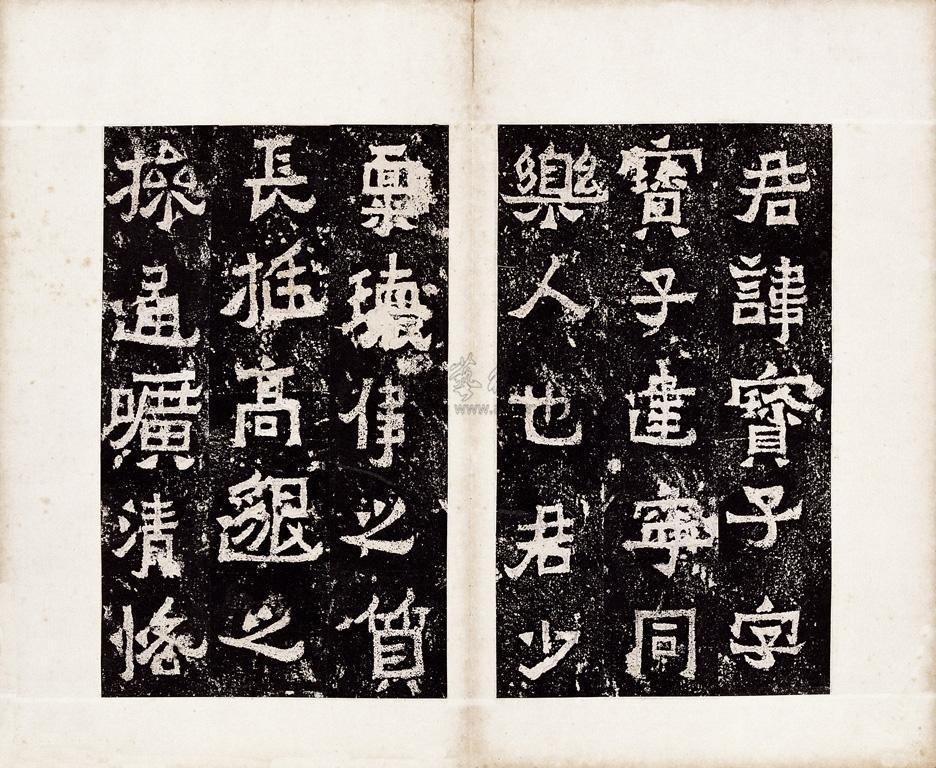 君諱寶子字
寶子建寧同
樂人也君少
稟瓌偉之質
長挺高邈之
操通曠清恪